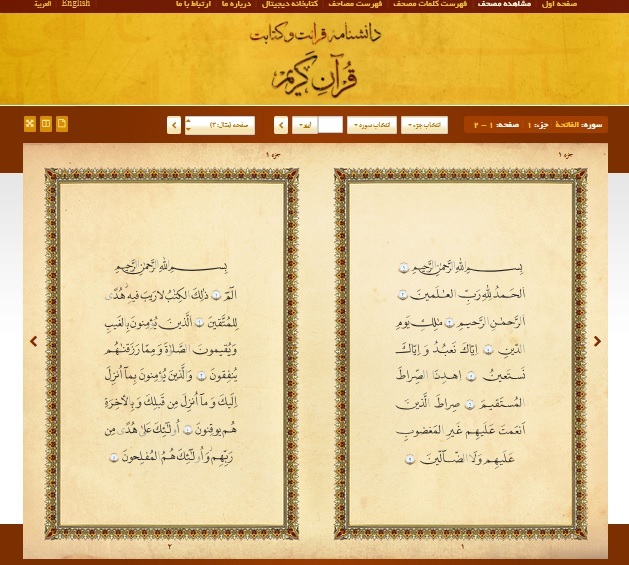 صفحه اول | مشاهده مصحف | فهرست کلمات مصحف | فهرست مصاحف | کتابخانه دیجیتال | درباره ما | ارتباط با ما
English | العربية
دانشنامه قرائت و کتابت
قرآن کریم
سوره: الفاتحة | جزء: ۱ | صفحه: ۱ - ۲
انتخاب جزء
انتخاب سوره
آیه
صفحه (مثال: ۳)
جزء ۱
بِسمِ اللهِ الرَّحمٰنِ الرَّحيمِ ۱
الحَمدُ لِلّهِ رَبِّ العٰلَمينَ ۲
الرَّحمٰنِ الرَّحيمِ ۳ مٰلِكِ يَومِ
الدّينِ ۴ اِيّاكَ نَعبُدُ وَ اِيّاكَ
نَستَعينُ ۵ اِهدِنَا الصِّراطَ
المُستَقيمَ ۶ صِراطَ الَّذينَ
اَنعَمتَ عَلَيهِم غَيرِ المَغضوبِ
عَلَيهِم وَلَا الضّآلّينَ ۷
۱
جزء ۱
بِسمِ اللهِ الرَّحمٰنِ الرَّحيمِ
الٓمٓ ۱ ذٰلِكَ الكِتٰبُ لا رَيبَ فيهِ هُدًى
لِلمُتَّقينَ ۲ الَّذينَ يُؤمِنونَ بِالغَيبِ
وَ يُقيمونَ الصَّلاةَ وَ مِمّا رَزَقنٰهُم
يُنفِقونَ ۳ وَ الَّذينَ يُؤمِنونَ بِمآ اُنزِلَ
اِلَيكَ وَ مآ اُنزِلَ مِن قَبلِكَ وَ بِالآخِرَةِ
هُم يوقِنونَ ۴ اُولٰٓئِكَ عَلىٰ هُدًى مِن
رَبِّهِم وَ اُولٰٓئِكَ هُمُ المُفلِحونَ ۵
۲